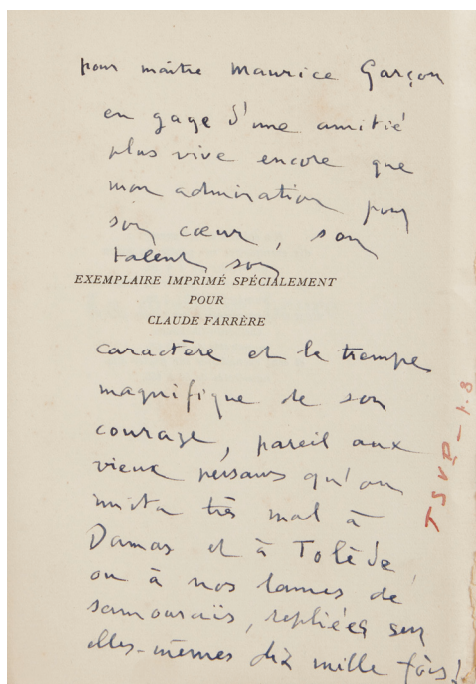 pour maître Maurice Garçon
en gage d'une amitié
plus vive encore que
mon admiration pour
son cœur, son
talent, son
EXEMPLAIRE IMPRIMÉ SPÉCIALEMENT
POUR
CLAUDE FARRÈRE
caractère et la trempe
magnifique de son
courage, pareil aux
vieux persans qu'on
imita très mal à
Damas et à Tolède,
ou à nos lames de
samouraïs, repliées sur
elles-mêmes dix mille fois!
TSVP - p. 8